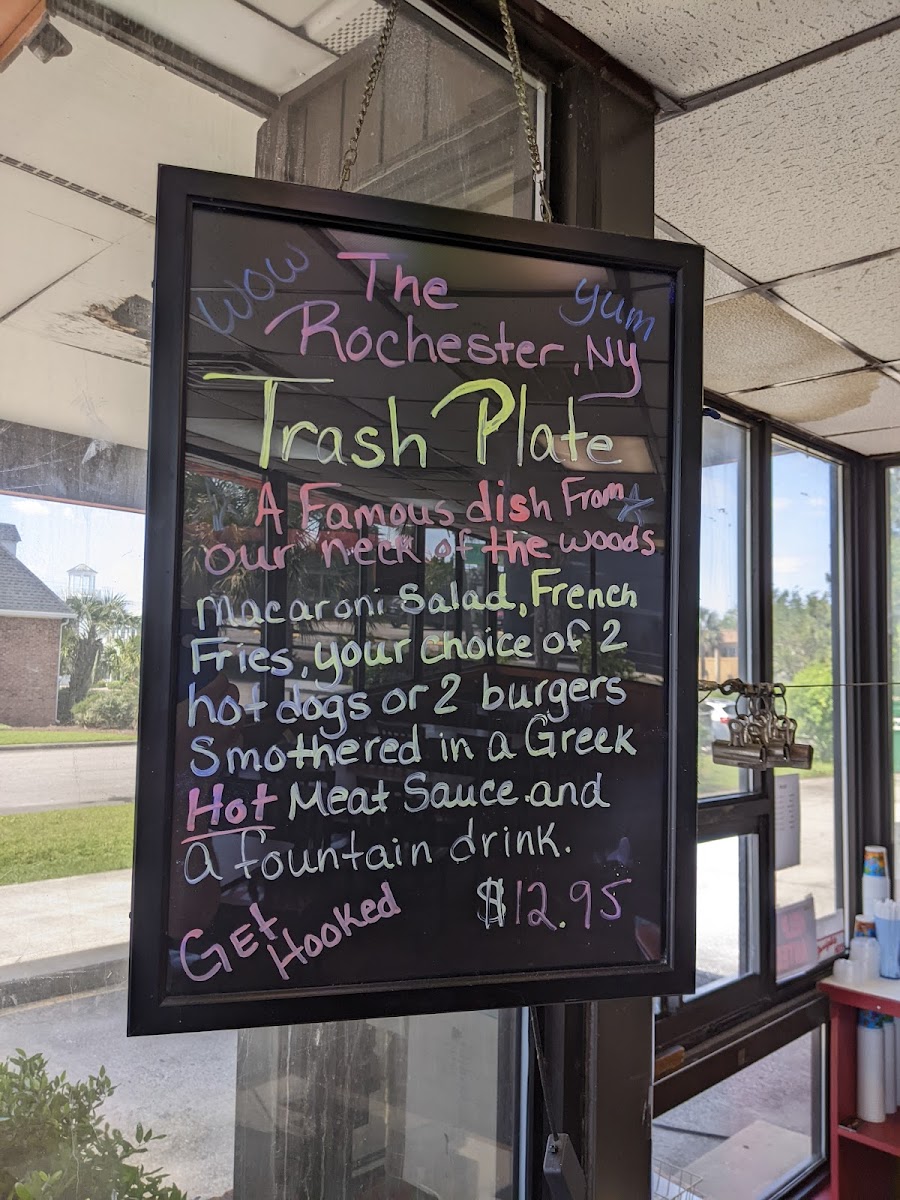 Wow
The
yum
Rochester, NY
Trash Plate
A Famous dish From
our neck of the woods
Macaroni Salad, French
Fries, your choice of 2
hot dogs or 2 burgers
Smothered in a Greek
Hot Meat Sauce and
a fountain drink.
Get
Hooked
$12.95